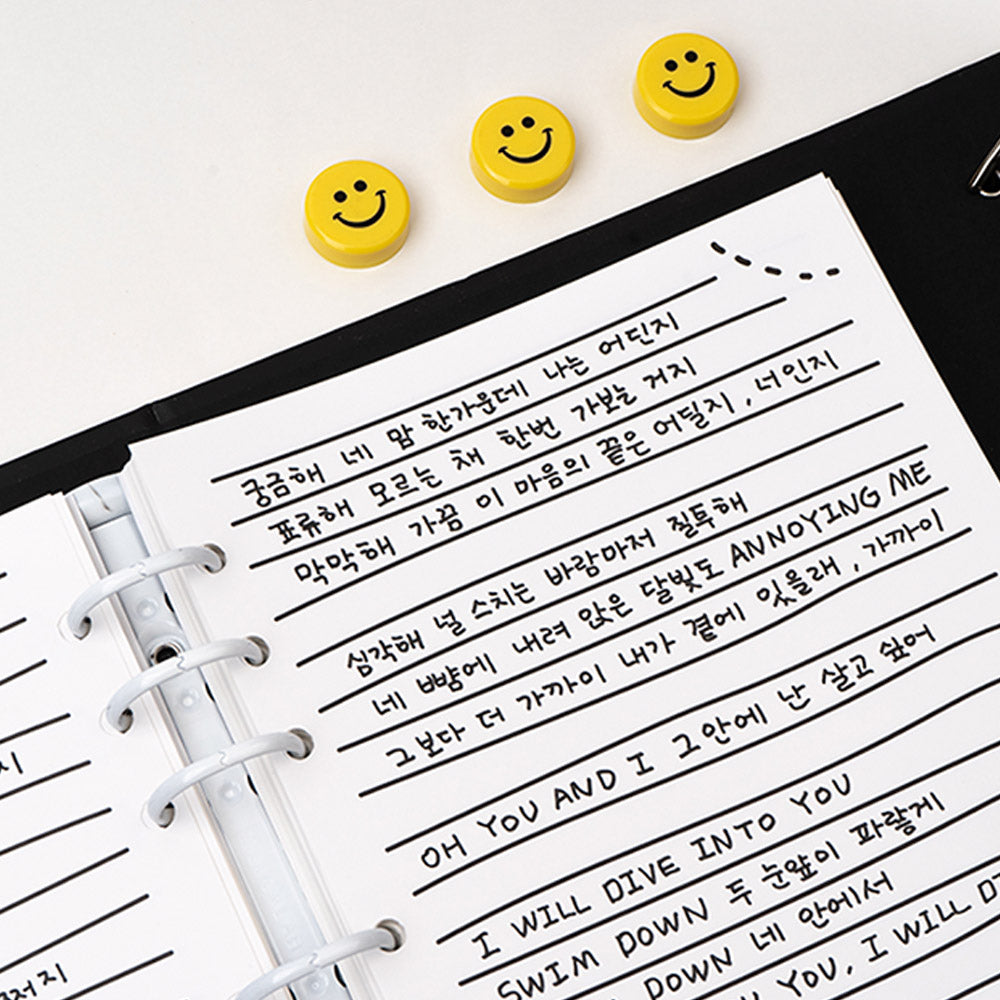 지
져지
궁금해 네 맘 한가운데 나는 어딘지
표류해 모르는 채 한번 가보는 거지
막막해 가끔 이 마음의 끝은 어딜지, 너인지
심각해 널 스치는 바람마저 질투해
네 뺨에 내려 앉은 달빛도 ANNOYING ME
그보다 더 가까이 내가 곁에 있을래, 가까이
OH YOU AND I 그 안에 난 살고 싶어
I WILL DIVE INTO YOU
SWIM DOWN 두 눈앞이 파랗게
DOWN 네 안에서
YOU, I WILL